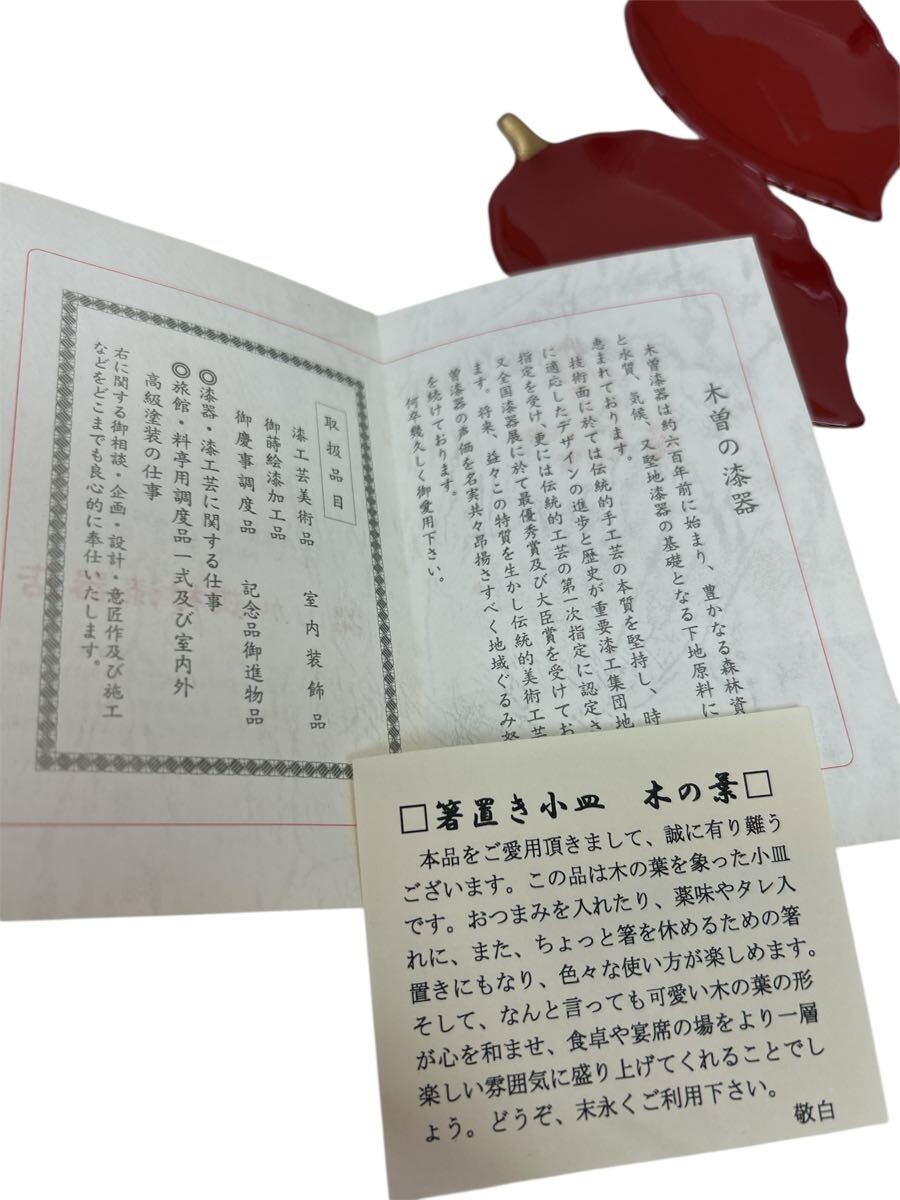 木曽の漆器
木曽漆器は約六百年前に始まり、豊かなる森林資
と水質、気候、又堅地漆器の基礎となる下地原料に
恵まれております。
技術面に於ては伝統的手工芸の本質を堅持し、時
に適応したデザインの進歩と歴史が重要漆工集団地
指定を受け、更には伝統的工芸の第一次指定に認定さ
又全国漆器展に於て最優秀賞及び大臣賞を受けてお
ます。将来、益々この特質を生かし伝統的美術工芸
曽漆器の声価を名実共々昂揚さすべく地域ぐるみ努
を続けております。
何卒幾久しく御愛用下さい。
取扱品目
漆工芸美術品 室内装飾品
御蒔絵漆加工品
御慶事調度品 記念品御進物品
◎漆器・漆工芸に関する仕事
◎旅館・料亭用調度品一式及び室内外
高級塗装の仕事
右に関する御相談・企画・設計・意匠作及び施工
などをどこまでも良心的に奉仕いたします。
□箸置き小皿 木の葉□
本品をご愛用頂きまして、誠に有り難う
ございます。この品は木の葉を象った小皿
です。おつまみを入れたり、薬味やタレ入
れに、また、ちょっと箸を休めるための箸
置きにもなり、色々な使い方が楽しめます。
そして、なんと言っても可愛い木の葉の形
が心を和ませ、食卓や宴席の場をより一層
楽しい雰囲気に盛り上げてくれることでし
ょう。どうぞ、末永くご利用下さい。
敬白